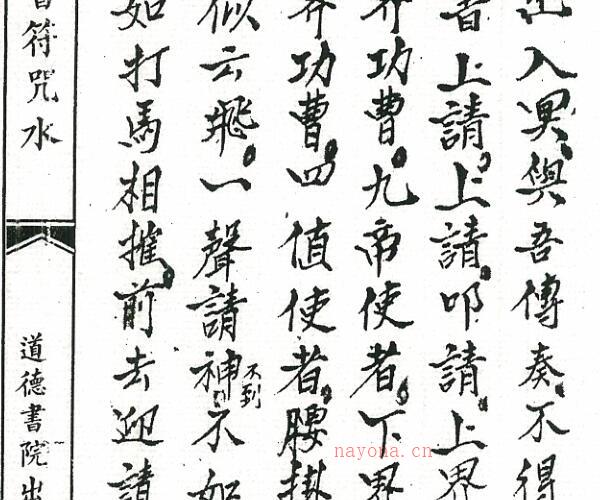 出入冥。與吾傳奏。不得
者上請。上請。叩請。上界
界功曹。九帝使者。下界
界功曹。四值使者。腰掛
似云飛。一聲請神不到不如
如打馬相摧。前去迎請
符咒水
道德書院出
nayona.cn